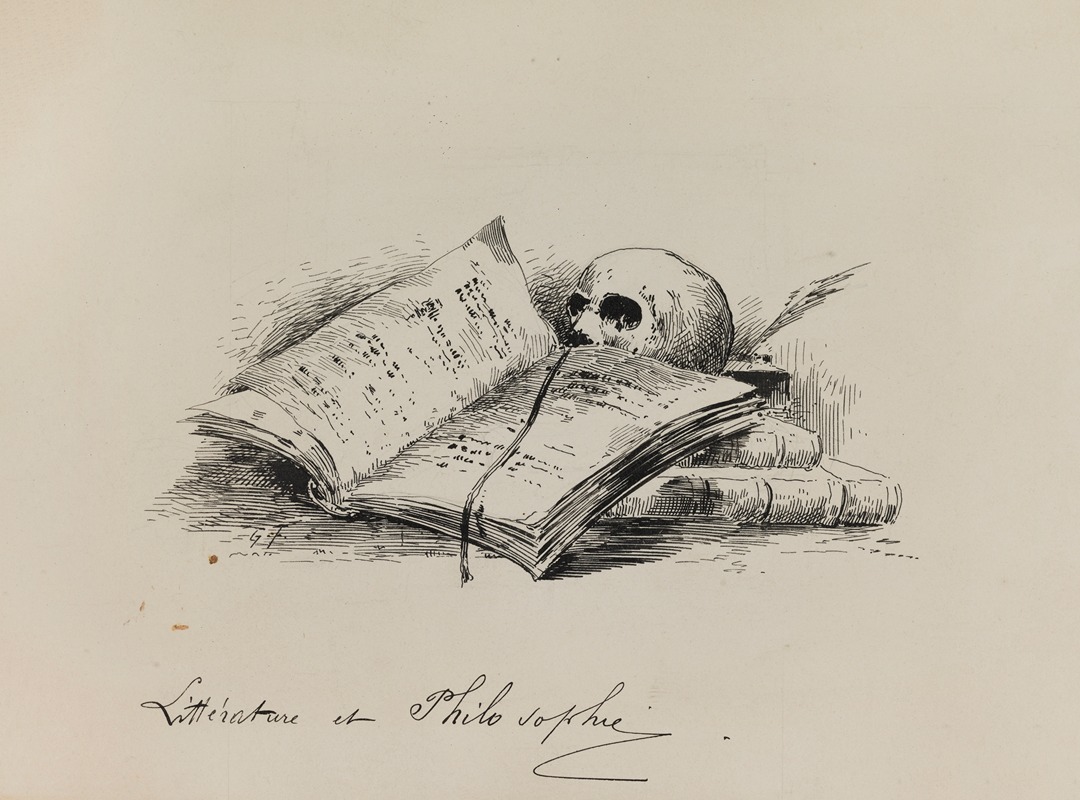 G. F.
Littérature et Philosophie